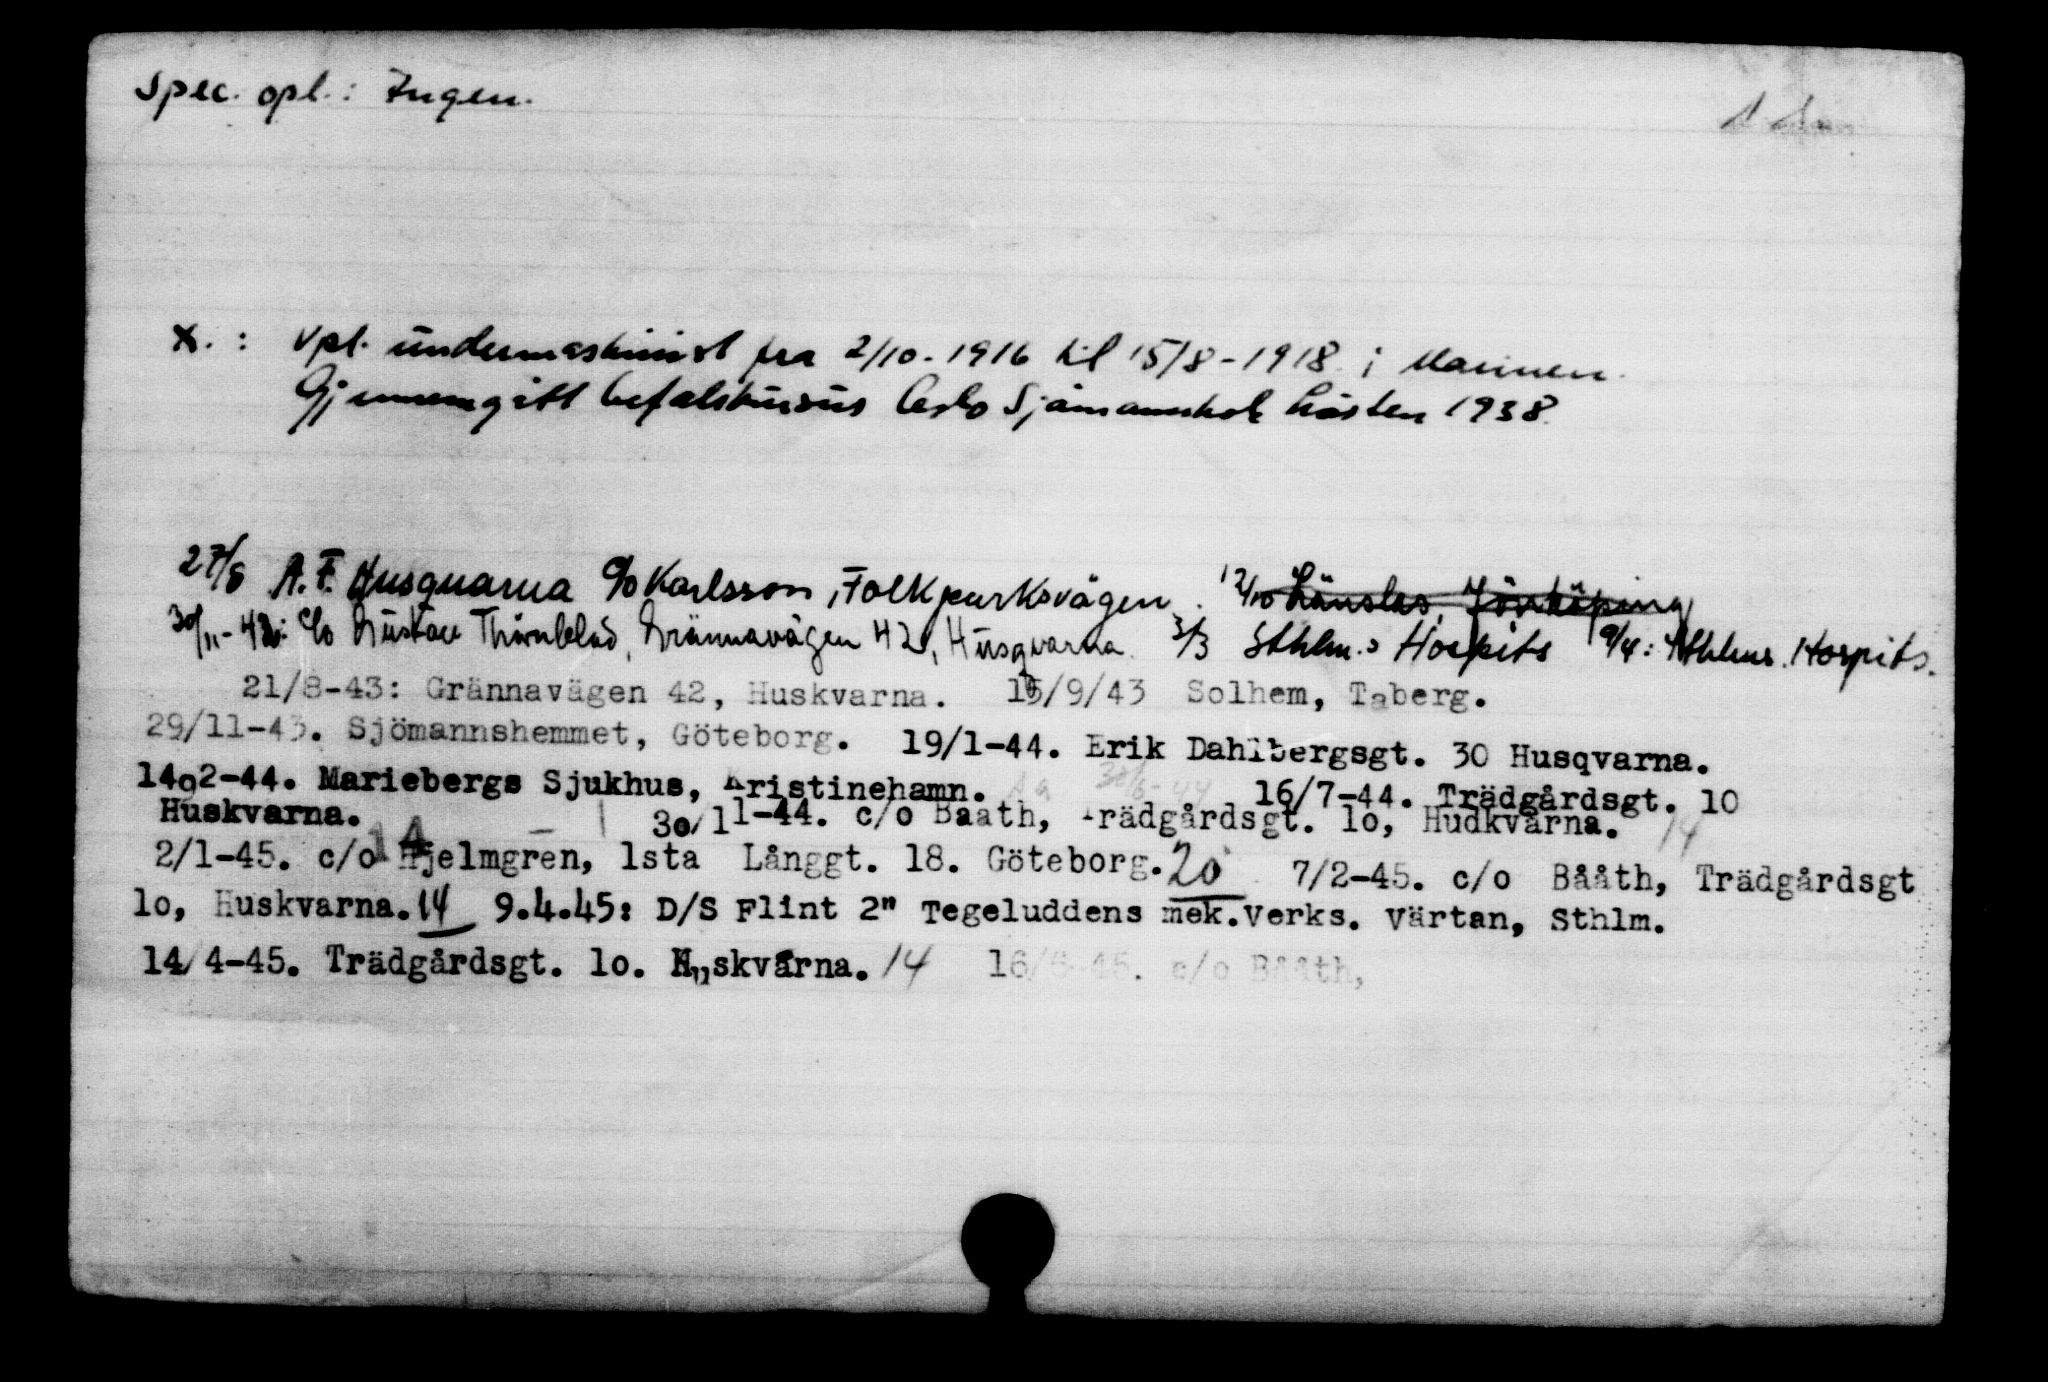 Spec. opl.: Ingen.
X. : Vpl. undermaskinist fra 2/10-1916 til 15/8-1918 i Marinen.
Gjennemgått befalskursus Oslo Sjømannskole høsten 1938.
27/8 A.F. Husquarna c/o Karlsson, Folkparksvägen. 12/10 Länslas, Jönköping
30/11-42: c/o Gustav Thörnblad, Grännavägen 42, Husqvarna. 3/3 Sthlm.s Hospits 9/4: Sthlms. Hospits.
21/8-43: Grännavägen 42, Huskvarna. 15/9/43 Solhem, Taberg.
29/11-43. Sjömannshemmet, Göteborg. 19/1-44. Erik Dahlbergsgt. 30 Husqvarna.
14o2-44. Mariebergs Sjukhus, Kristinehamn. 16/7-44. Trädgårdsgt. 10
Huskvarna. 30/11-44. c/o Baath, Trädgårdsgt. lo, Hudkvarna. 14
2/1-45. c/o Hjelmgren, 1sta Långgt. 18. Göteborg. 20 7/2-45. c/o Bååth, Trädgårdsgt
lo, Huskvarna. 14 9.4.45: D/S Flint 2" Tegeluddens mek.Verks. Värtan, Sthlm.
14/4-45. Trädgårdsgt. lo. Huskvarna. 14 16/6-45. c/o Bååth,